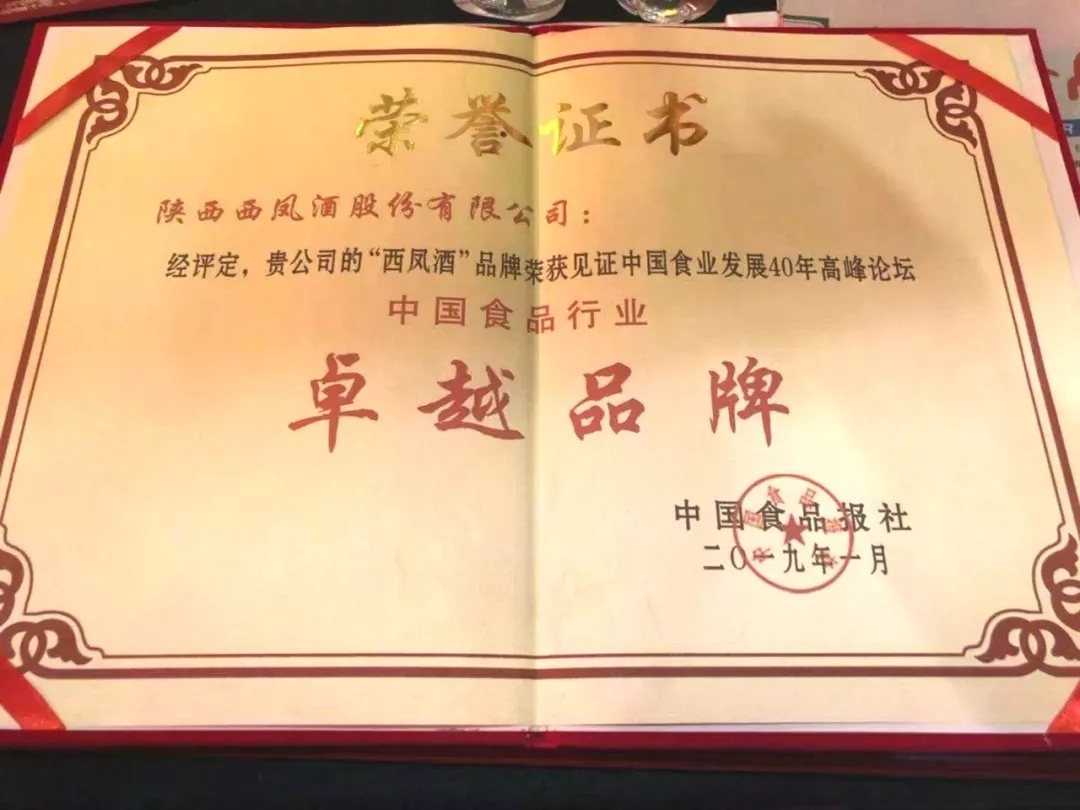 荣誉证书
陕西西凤酒股份有限公司：
经评定，贵公司的“西凤酒”品牌荣获见证中国食业发展40年高峰论坛
中国食品行业
卓越品牌
中国食品报社
二〇一九年一月